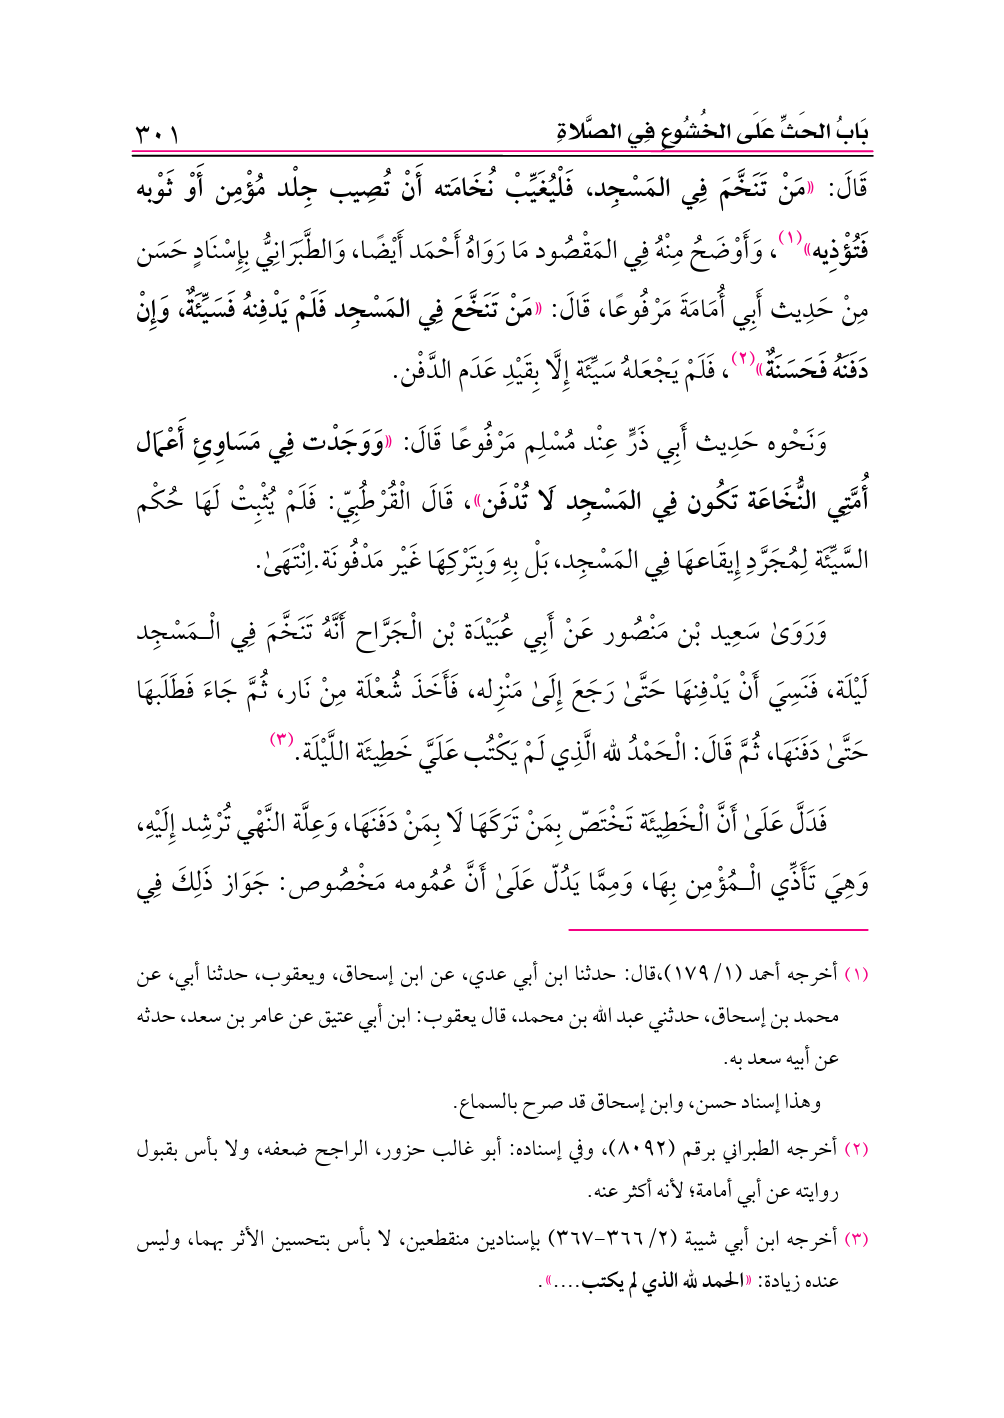 بَابُ الحَثِّ عَلَى الخُشُوعِ فِي الصَّلَاةِ ٣٠١
قَالَ: «مَنْ تَنَخَّمَ فِي المَسْجِد، فَلْيُغَيِّبْ نُخَامَته أَنْ تُصِيب جِلْد مُؤْمِن أَوْ ثَوْبه
فَتُؤْذِيه»(١)، وَأَوْضَحُ مِنْهُ فِي المَقْصُود مَا رَوَاهُ أَحْمَد أَيْضًا، وَالطَّبَرَانِيُّ بِإِسْنَادٍ حَسَن
مِنْ حَدِيث أَبِي أُمَامَةَ مَرْفُوعًا، قَالَ: «مَنْ تَنَخَّعَ فِي المَسْجِد فَلَمْ يَدْفِنهُ فَسَيِّئَةٌ، وَإِنْ
دَفَنَهُ فَحَسَنَةٌ»(٢)، فَلَمْ يَجْعَلهُ سَيِّئَة إِلَّا بِقَيْدِ عَدَم الدَّفْن.
وَنَحْوه حَدِيث أَبِي ذَرٍّ عِنْد مُسْلِم مَرْفُوعًا قَالَ: «وَوَجَدْت فِي مَسَاوِئِ أَعْمَال
أُمَّتِي النُّخَاعَة تَكُون فِي المَسْجِد لَا تُدْفَن»، قَالَ الْقُرْطُبِيّ: فَلَمْ يُثْبِتْ لَهَا حُكْم
السَّيِّئَة لِمُجَرَّدِ إِيقَاعهَا فِي المَسْجِد، بَلْ بِهِ وَبِتَرْكِهَا غَيْر مَدْفُونَة.اِنْتَهَىٰ.
وَرَوَىٰ سَعِيد بْن مَنْصُور عَنْ أَبِي عُبَيْدَة بْن الْجَرَّاح أَنَّهُ تَنَخَّمَ فِي الْـمَسْجِد
لَيْلَة، فَنَسِيَ أَنْ يَدْفِنهَا حَتَّىٰ رَجَعَ إِلَىٰ مَنْزِله، فَأَخَذَ شُعْلَة مِنْ نَار، ثُمَّ جَاءَ فَطَلَبهَا
حَتَّىٰ دَفَنَهَا، ثُمَّ قَالَ: الْحَمْدُ لله الَّذِي لَمْ يَكْتُب عَلَيَّ خَطِيئَة اللَّيْلَة.(٣)
فَدَلَّ عَلَىٰ أَنَّ الْخَطِيئَة تَخْتَصّ بِمَنْ تَرَكَهَا لَا بِمَنْ دَفَنَهَا، وَعِلَّة النَّهْي تُرْشِد إِلَيْهِ،
وَهِيَ تَأَذِّي الْـمُؤْمِن بِهَا، وَمِمَّا يَدُلّ عَلَىٰ أَنَّ عُمُومه مَخْصُوص: جَوَاز ذَلِكَ فِي
(١) أخرجه أحمد (١/ ١٧٩)،قال: حدثنا ابن أبي عدي، عن ابن إسحاق، ويعقوب، حدثنا أبي، عن
محمد بن إسحاق، حدثني عبد الله بن محمد، قال يعقوب: ابن أبي عتيق عن عامر بن سعد، حدثه
عن أبيه سعد به.
وهذا إسناد حسن، وابن إسحاق قد صرح بالسماع.
(٢) أخرجه الطبراني برقم (٨٠٩٢)، وفي إسناده: أبو غالب حزور، الراجح ضعفه، ولا بأس بقبول
روايته عن أبي أمامة؛ لأنه أكثر عنه.
(٣) أخرجه ابن أبي شيبة (٢/ ٣٦٦-٣٦٧) بإسنادين منقطعين، لا بأس بتحسين الأثر بهما، وليس
عنده زيادة: «الحمد لله الذي لم يكتب....».